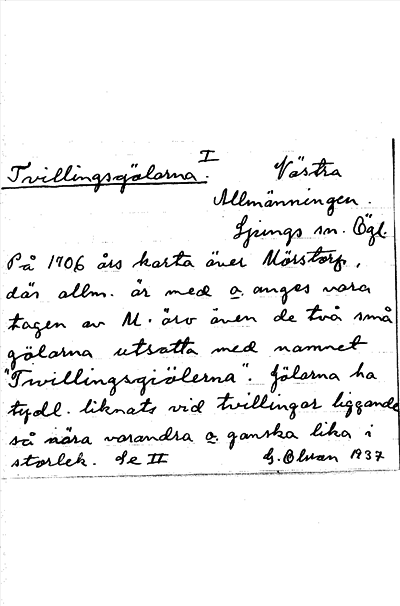 I
Tvillingsgölarna. Västra
Allmänningen.
Ljungs sn. Ögl.
På 1706 års karta över Mörstorp,
där allm. är med o. anges vara
tagen av M. äro även de två små
gölarna utsatta med namnet
"Tvillingsgiölerna". Gölarna ha
tydl. liknats vid tvillingar liggande
så nära varandra o. ganska lika i
storlek. Se II G. Olson 1937